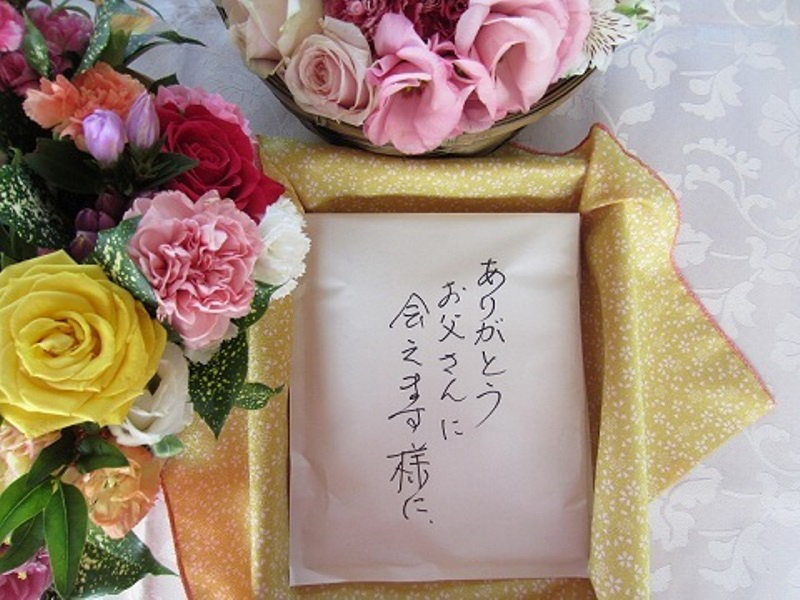 ありがとう
お父さんに
会えます様に、